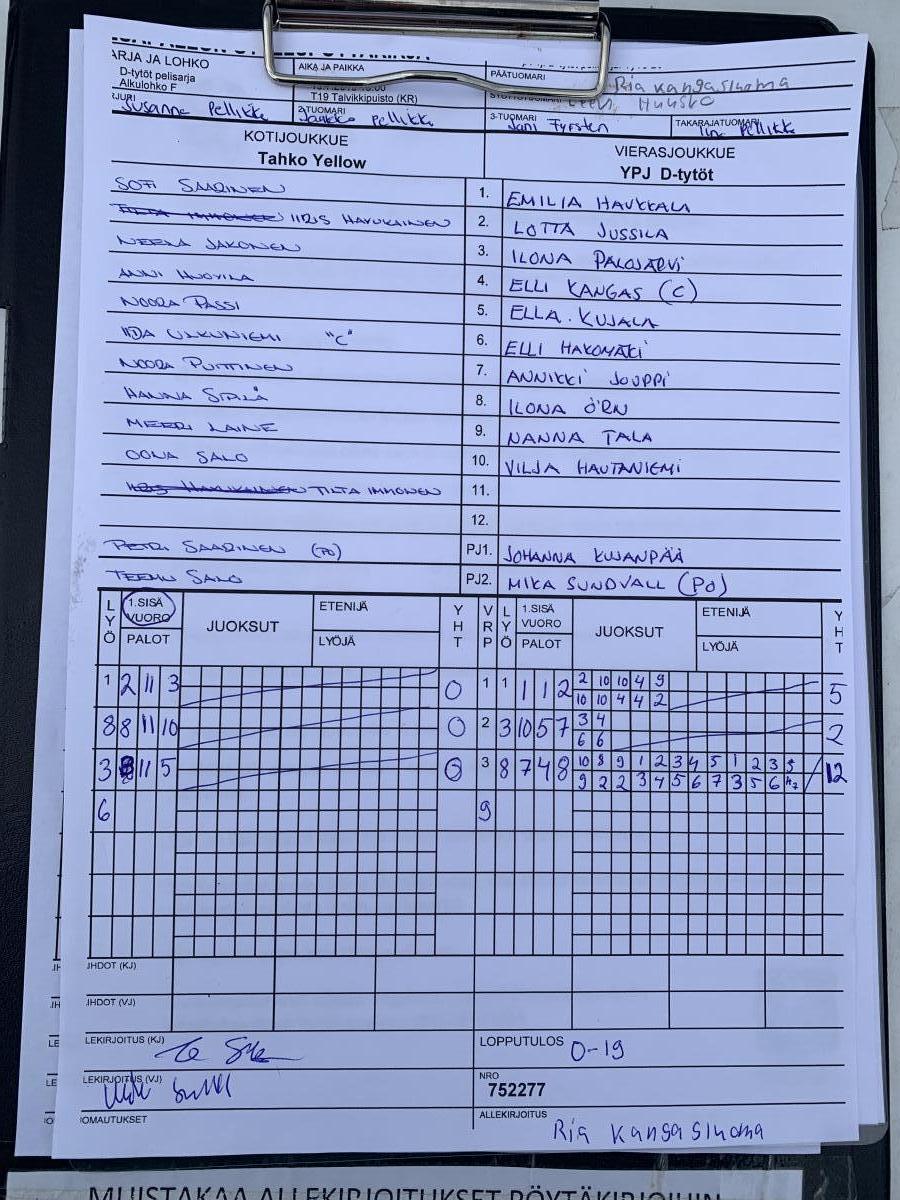 ARJA JA LOHKO
D-tytöt pelisarja
Alkulohko F
AIKA JA PAIKKA
T19 Talvikkipuisto (KR)
PÄÄTUOMARI
Ria Kangasluoma
Susanne Pellikka
2-TUOMARI
Pellikka
3-TUOMARI
Jani Fyrsten
TAKARAJATUOMARI
Pellikka
KOTIJOUKKUE
Tahko Yellow
VIERASJOUKKUE
YPJ D-tytöt
SOFI SAARINEN 1. EMILIA HAUKKALA
IIRIS HAVUKAINEN 2. LOTTA JUSSILA
NEEA JAKONEN 3. ILONA PALOJÄRVI
ANNI HUOVILA 4. ELLI KANGAS (C)
NOORA PASSI 5. ELLA KUJALA
IIDA ULKUNIEMI "C" 6. ELLI HAKOMÄKI
NOORA PUTTINEN 7. ANNIKKI JOUPPI
HANNA SIPILÄ 8. ILONA ÖRN
MEERI LAINE 9. NANNA TALA
OONA SALO 10. VILJA HAUTANIEMI
IMMONEN 11.
12.
PETRI SAARINEN (PO) PJ1. JOHANNA KUJANPÄÄ
TEEMU SALO PJ2. MIKA SUNDVALL (PO)
LYÖ 1.SISÄ VUORO PALOT JUOKSUT ETENIJÄ LYÖJÄ YHT VRP LYÖ 1.SISÄ VUORO PALOT JUOKSUT ETENIJÄ LYÖJÄ YHT
1 2 11 3 0 1 1 1 1 2 2 10 10 4 9 5
10 10 4 4 2
8 8 11 10 0 2 3 10 5 7 3 4 2
6 6
3 8 11 5 0 3 8 7 4 8 10 8 9 1 2 3 4 5 1 2 3 5 12
9 2 2 3 4 5 6 7 3 5 6
6 9
JHDOT (KJ)
JHDOT (VJ)
LEKIRJOITUS (KJ)
LOPPUTULOS 0-19
LEKIRJOITUS (VJ)
NRO
752277
OMAUTUKSET
ALLEKIRJOITUS
Ria Kangasluoma
MUISTAKAA ALLEKIRJOITUKSET PÖYTÄKIRJOIHIN